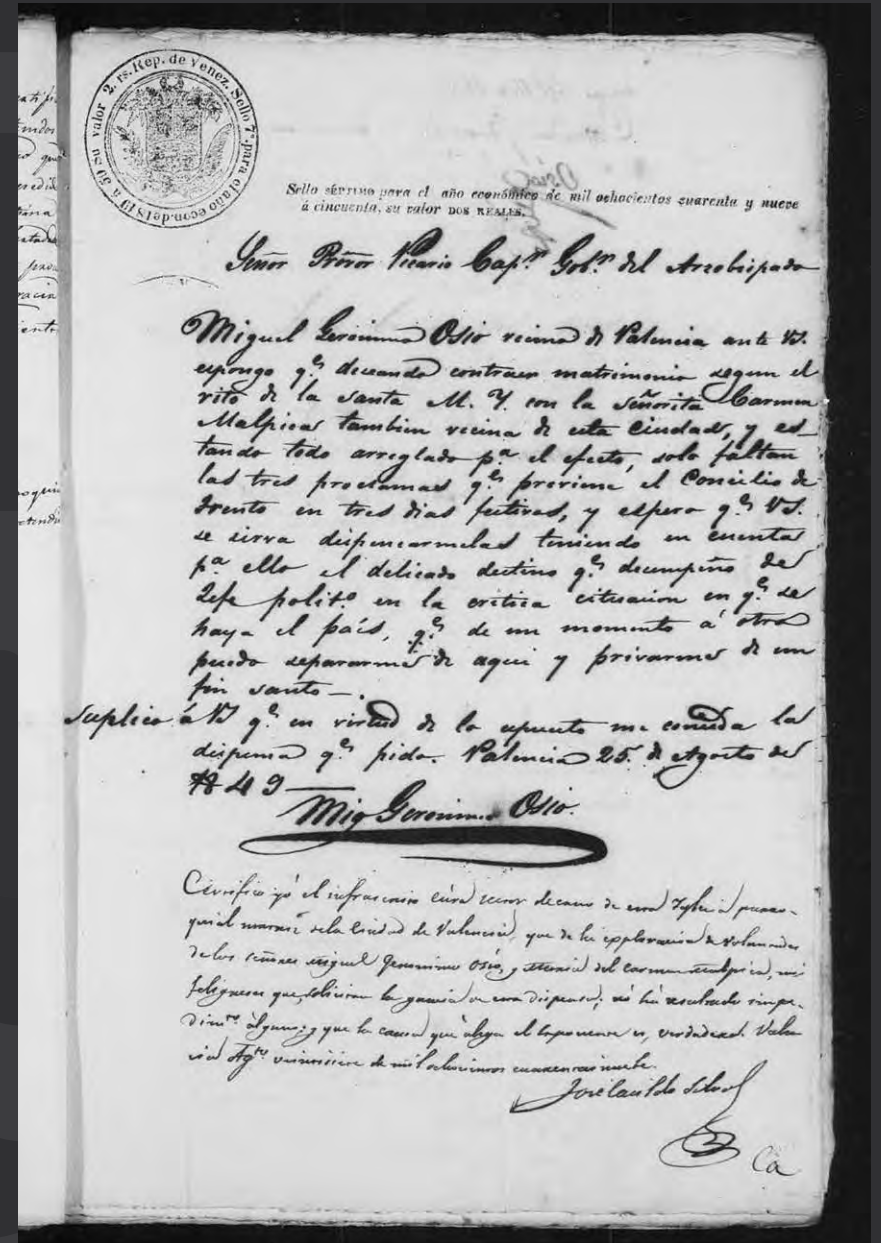 2. rs. Rep. de Venez. Sello 7º para el año econ. de 1849 a 50 su valor
Sello séptimo para el año económico de mil ochocientos cuarenta y nueve
á cincuenta, su valor DOS REALES.
Señor Prōvor Vicario Cap.r Gob.r del Arzobispado
Miguel Gerónimo Osio vecino de Valencia ante VS.
espongo q.e deceando contraer matrimonio segun el
rito de la santa M. Y. con la señorita Carmen
Malpica tambien vecina de esta ciudad, y es-
tando todo arreglado p.a el efecto, solo faltan
las tres proclamas q.e previene el Concilio de
Trento en tres dias festivos, y espero q.e VS.
se sirva dispensarmelas teniendo en cuenta
p.a ello el delicado destino q.e decempeño de
Jefe polit.o en la critica cituacion en q.e se
haya el país, q.e de un momento á otro
puedo separarme de aqui y privarme de un
fin santo—.
Suplico á VS q.e en virtud de lo espuesto me conceda la
dispensa q.e pido. Valencia 25. de Agosto de
1849—
Mig Geronimo Osio.
Certifico yó el infrascrito cura rector decano de esta Iglecia parro-
quial matriz de la Ciudad de Valencia, que de la exploracion de voluntades
de los señores Miguel Geronimo Osio, y Maria del Carmen Malpica, mis
feligreses que solicitan la gracia de esta dispensa, nó há resultado impe-
dim.to alguno; y que la causa que alega el esponente es verdadera. Valen
cia Ag.to veintisiete de mil ochocientos cuarenta i nueve.
José Silva
Ca